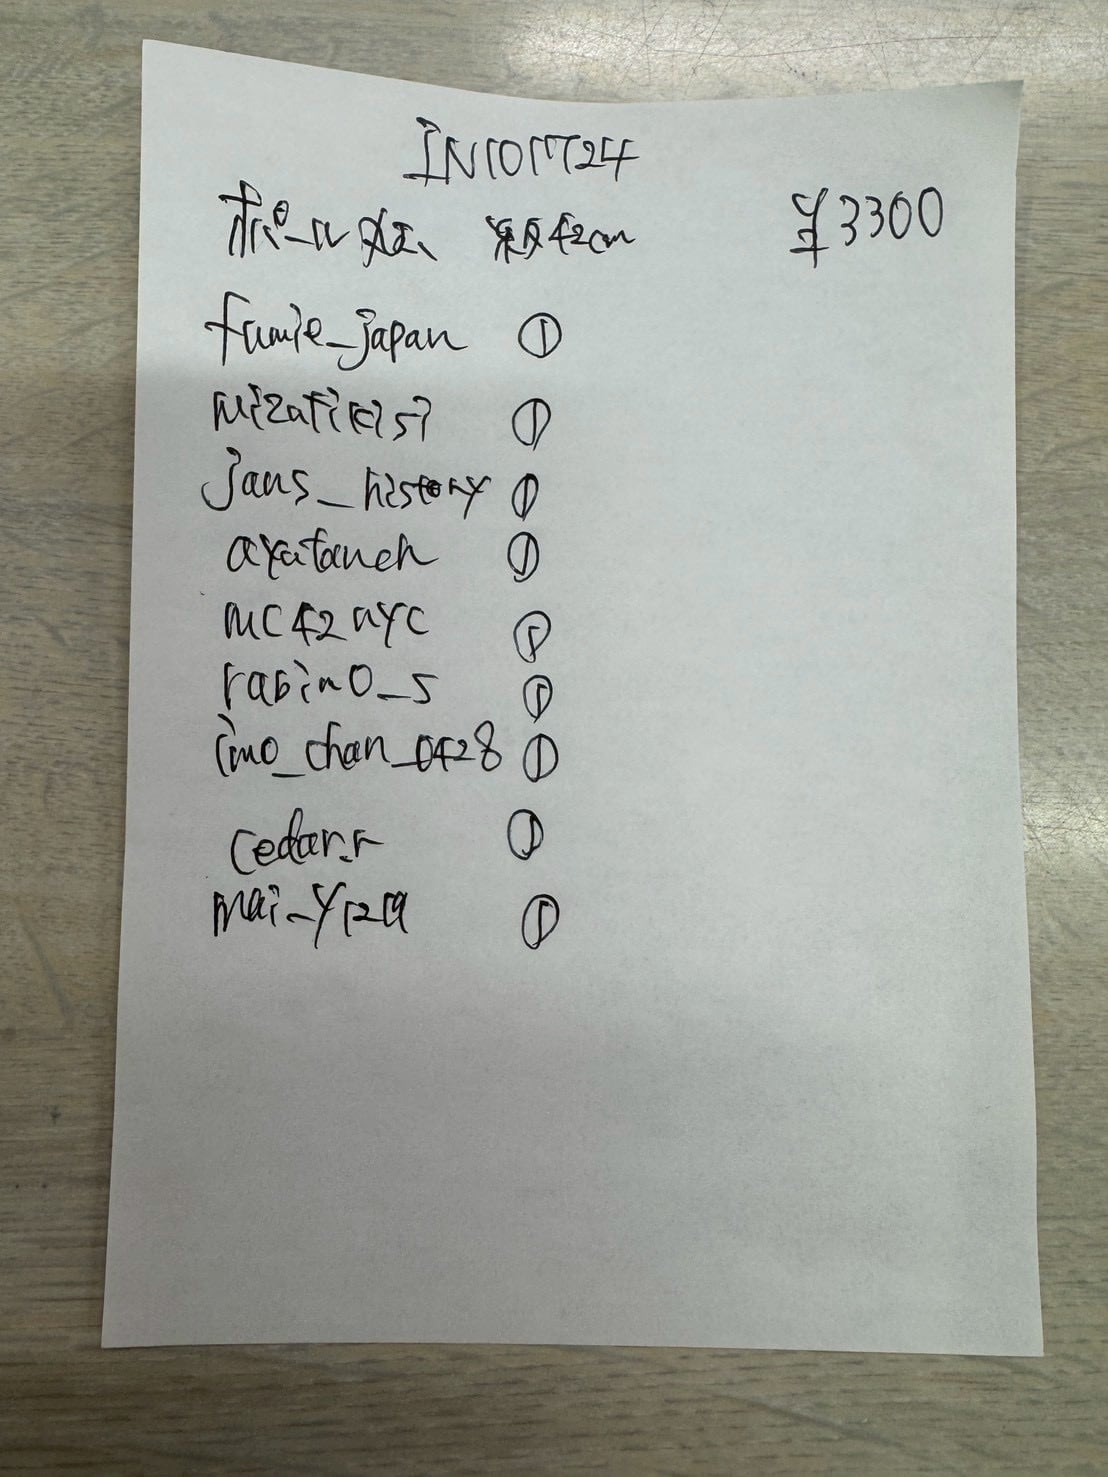 IN101724
ポール 42cm ¥3300
fumie_japan ①
①
jans_history ①
ayataneh ①
MC42nyc ①
rabin0_s ①
imo_chan_0428 ①
cedar.r ①
mai_y1219 ①